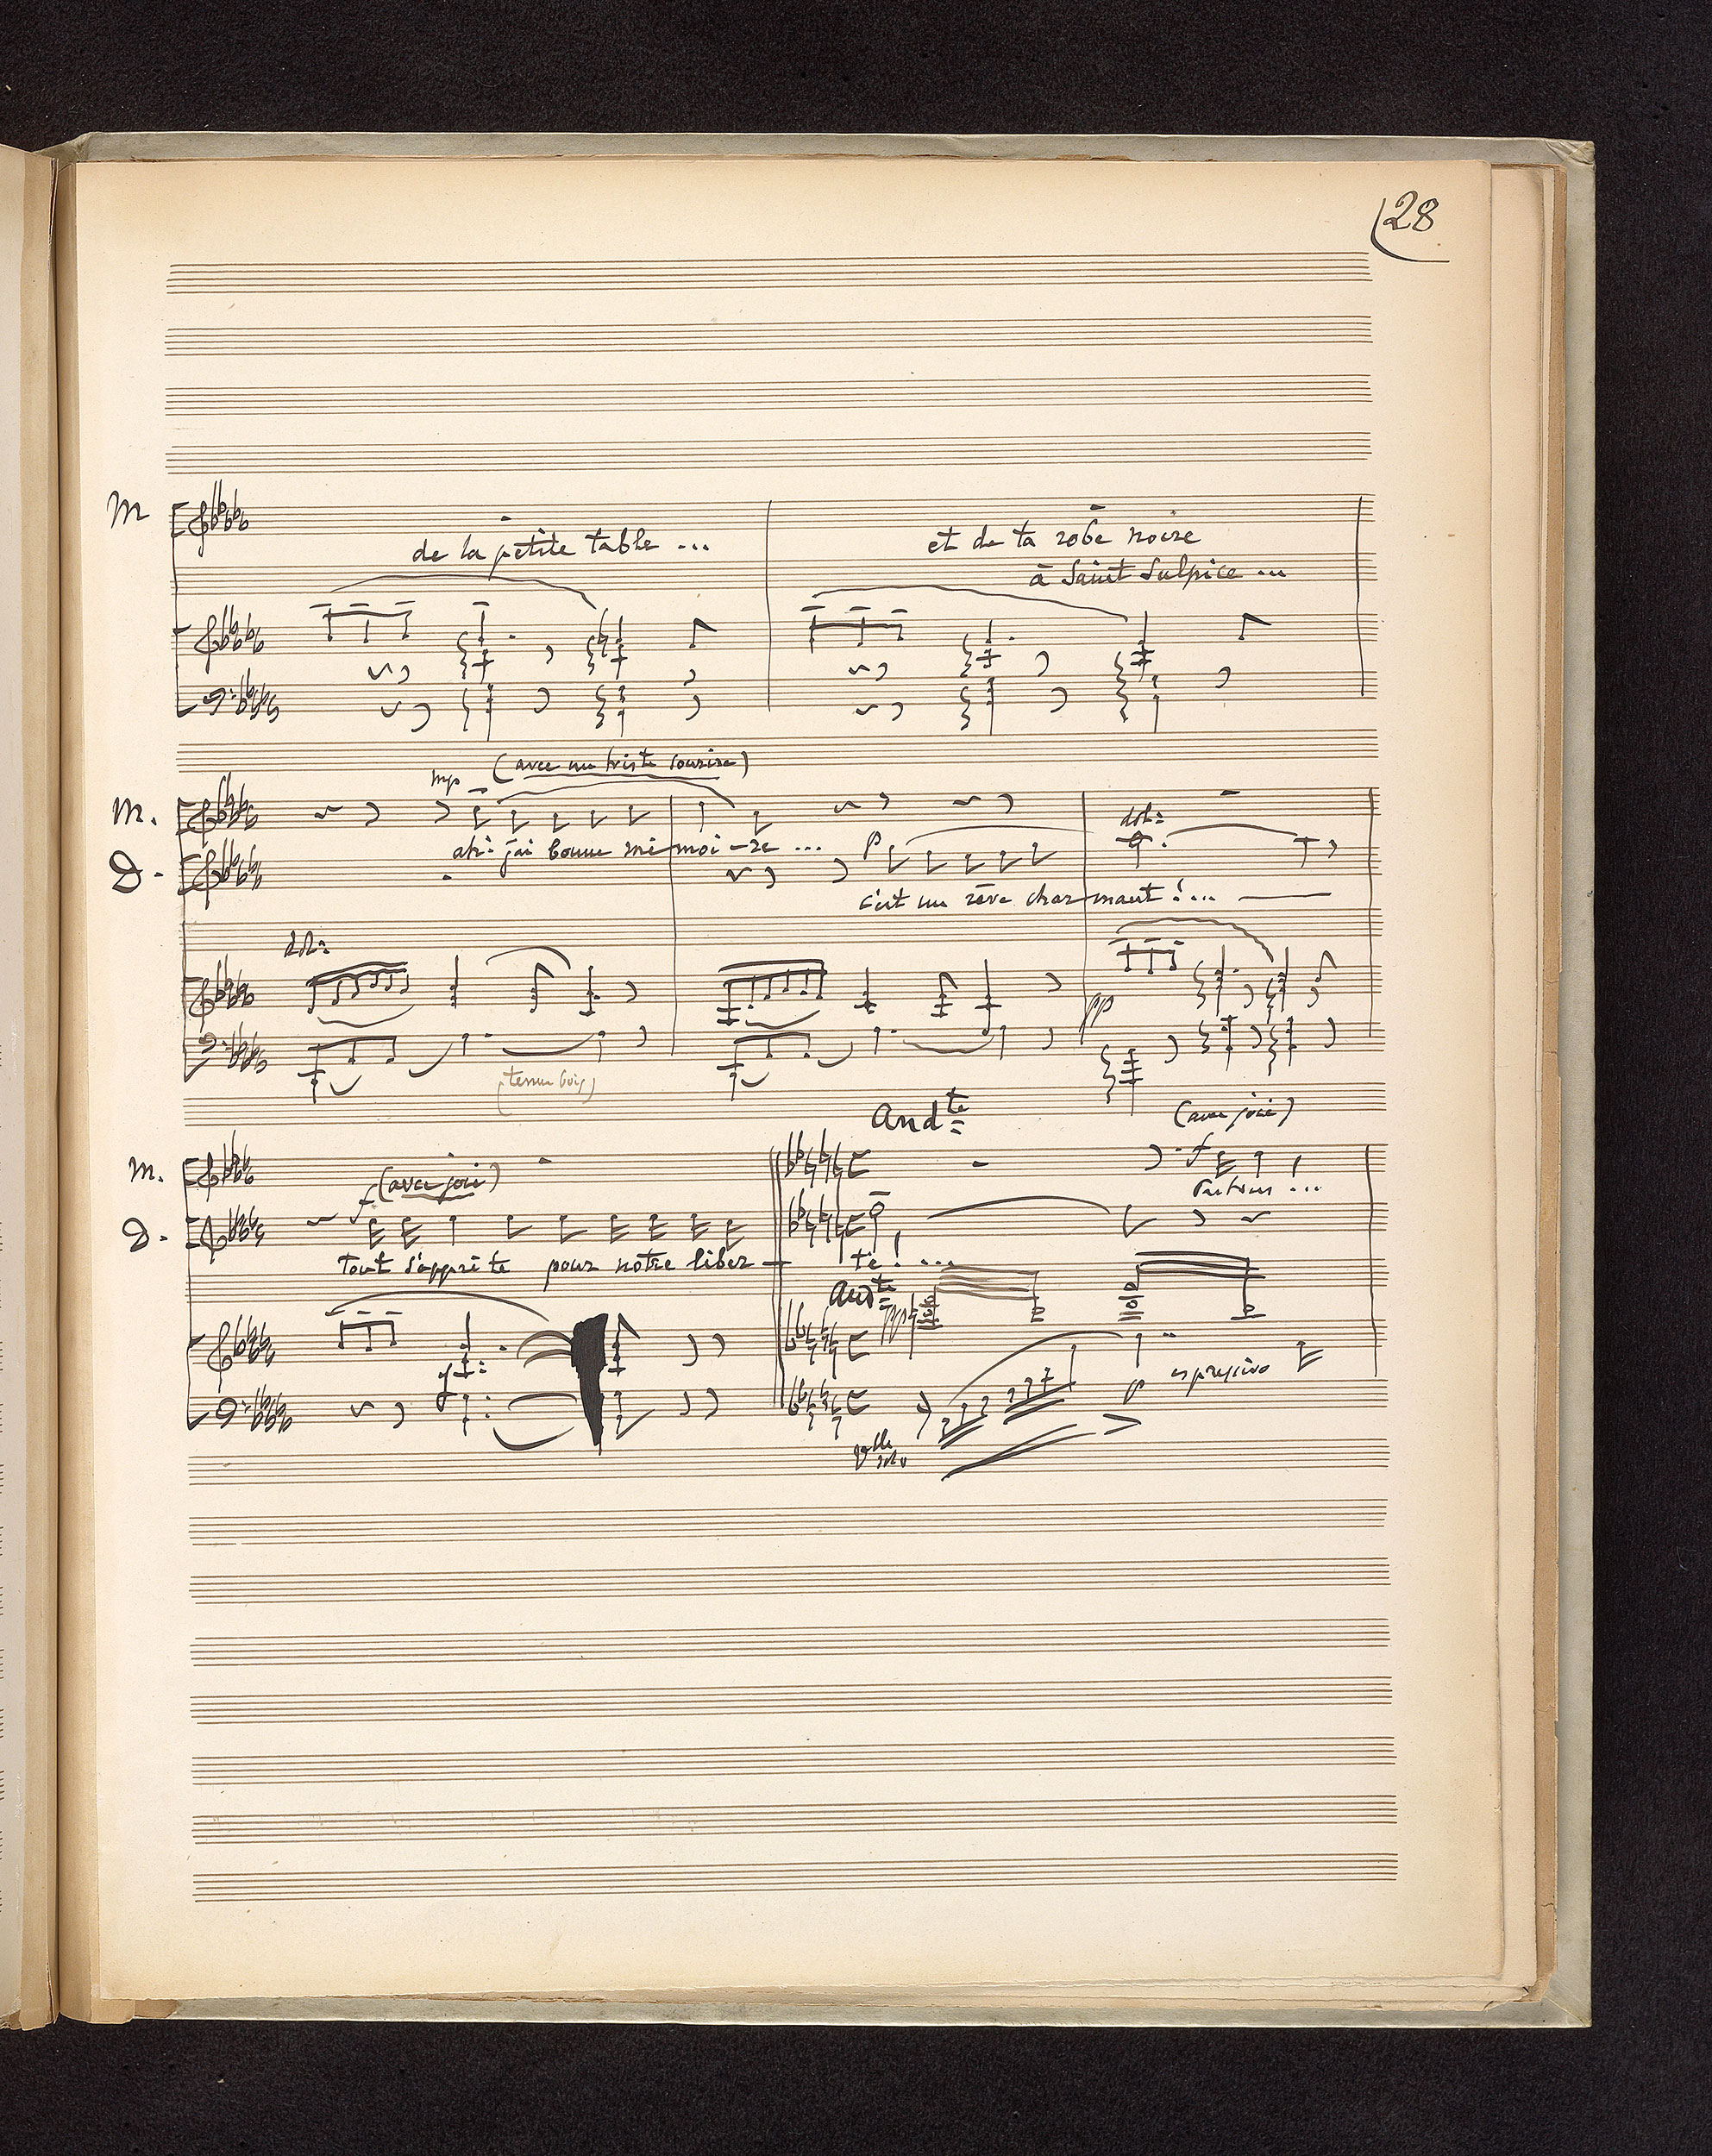 28
M
de la petite table ...
et de ta robe noire
à Saint Sulpice ...
mp (avec un triste sourire)
M.
ah! j'ai bonne mé moi - re ...
dol:
D.
p
c'est un rêve char mant!...
dol:
pp
(tenue bois)
Andte
(avec joie)
M.
f (avec joie)
f
Partons!...
D.
tout s'apprê te pour notre liber - té!....
Andte
pp
p espressivo
vlle
solo